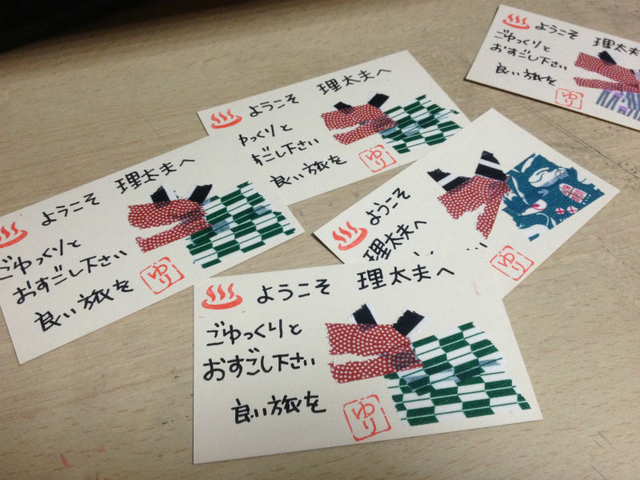 ようこそ 理太夫へ
ごゆっくりと
おすごし下さい
良い旅を
ゆり
ようこそ 理太夫へ
ゆっくりと
すごし下さい
良い旅を
ゆり
ようこそ 理太夫へ
ごゆっくりと
おすごし下さい
良い旅を
ゆり
ようこそ
理太夫へ
ゆり
ようこそ 理太夫へ
ごゆっくりと
おすごし下さい
良い旅を
ゆり